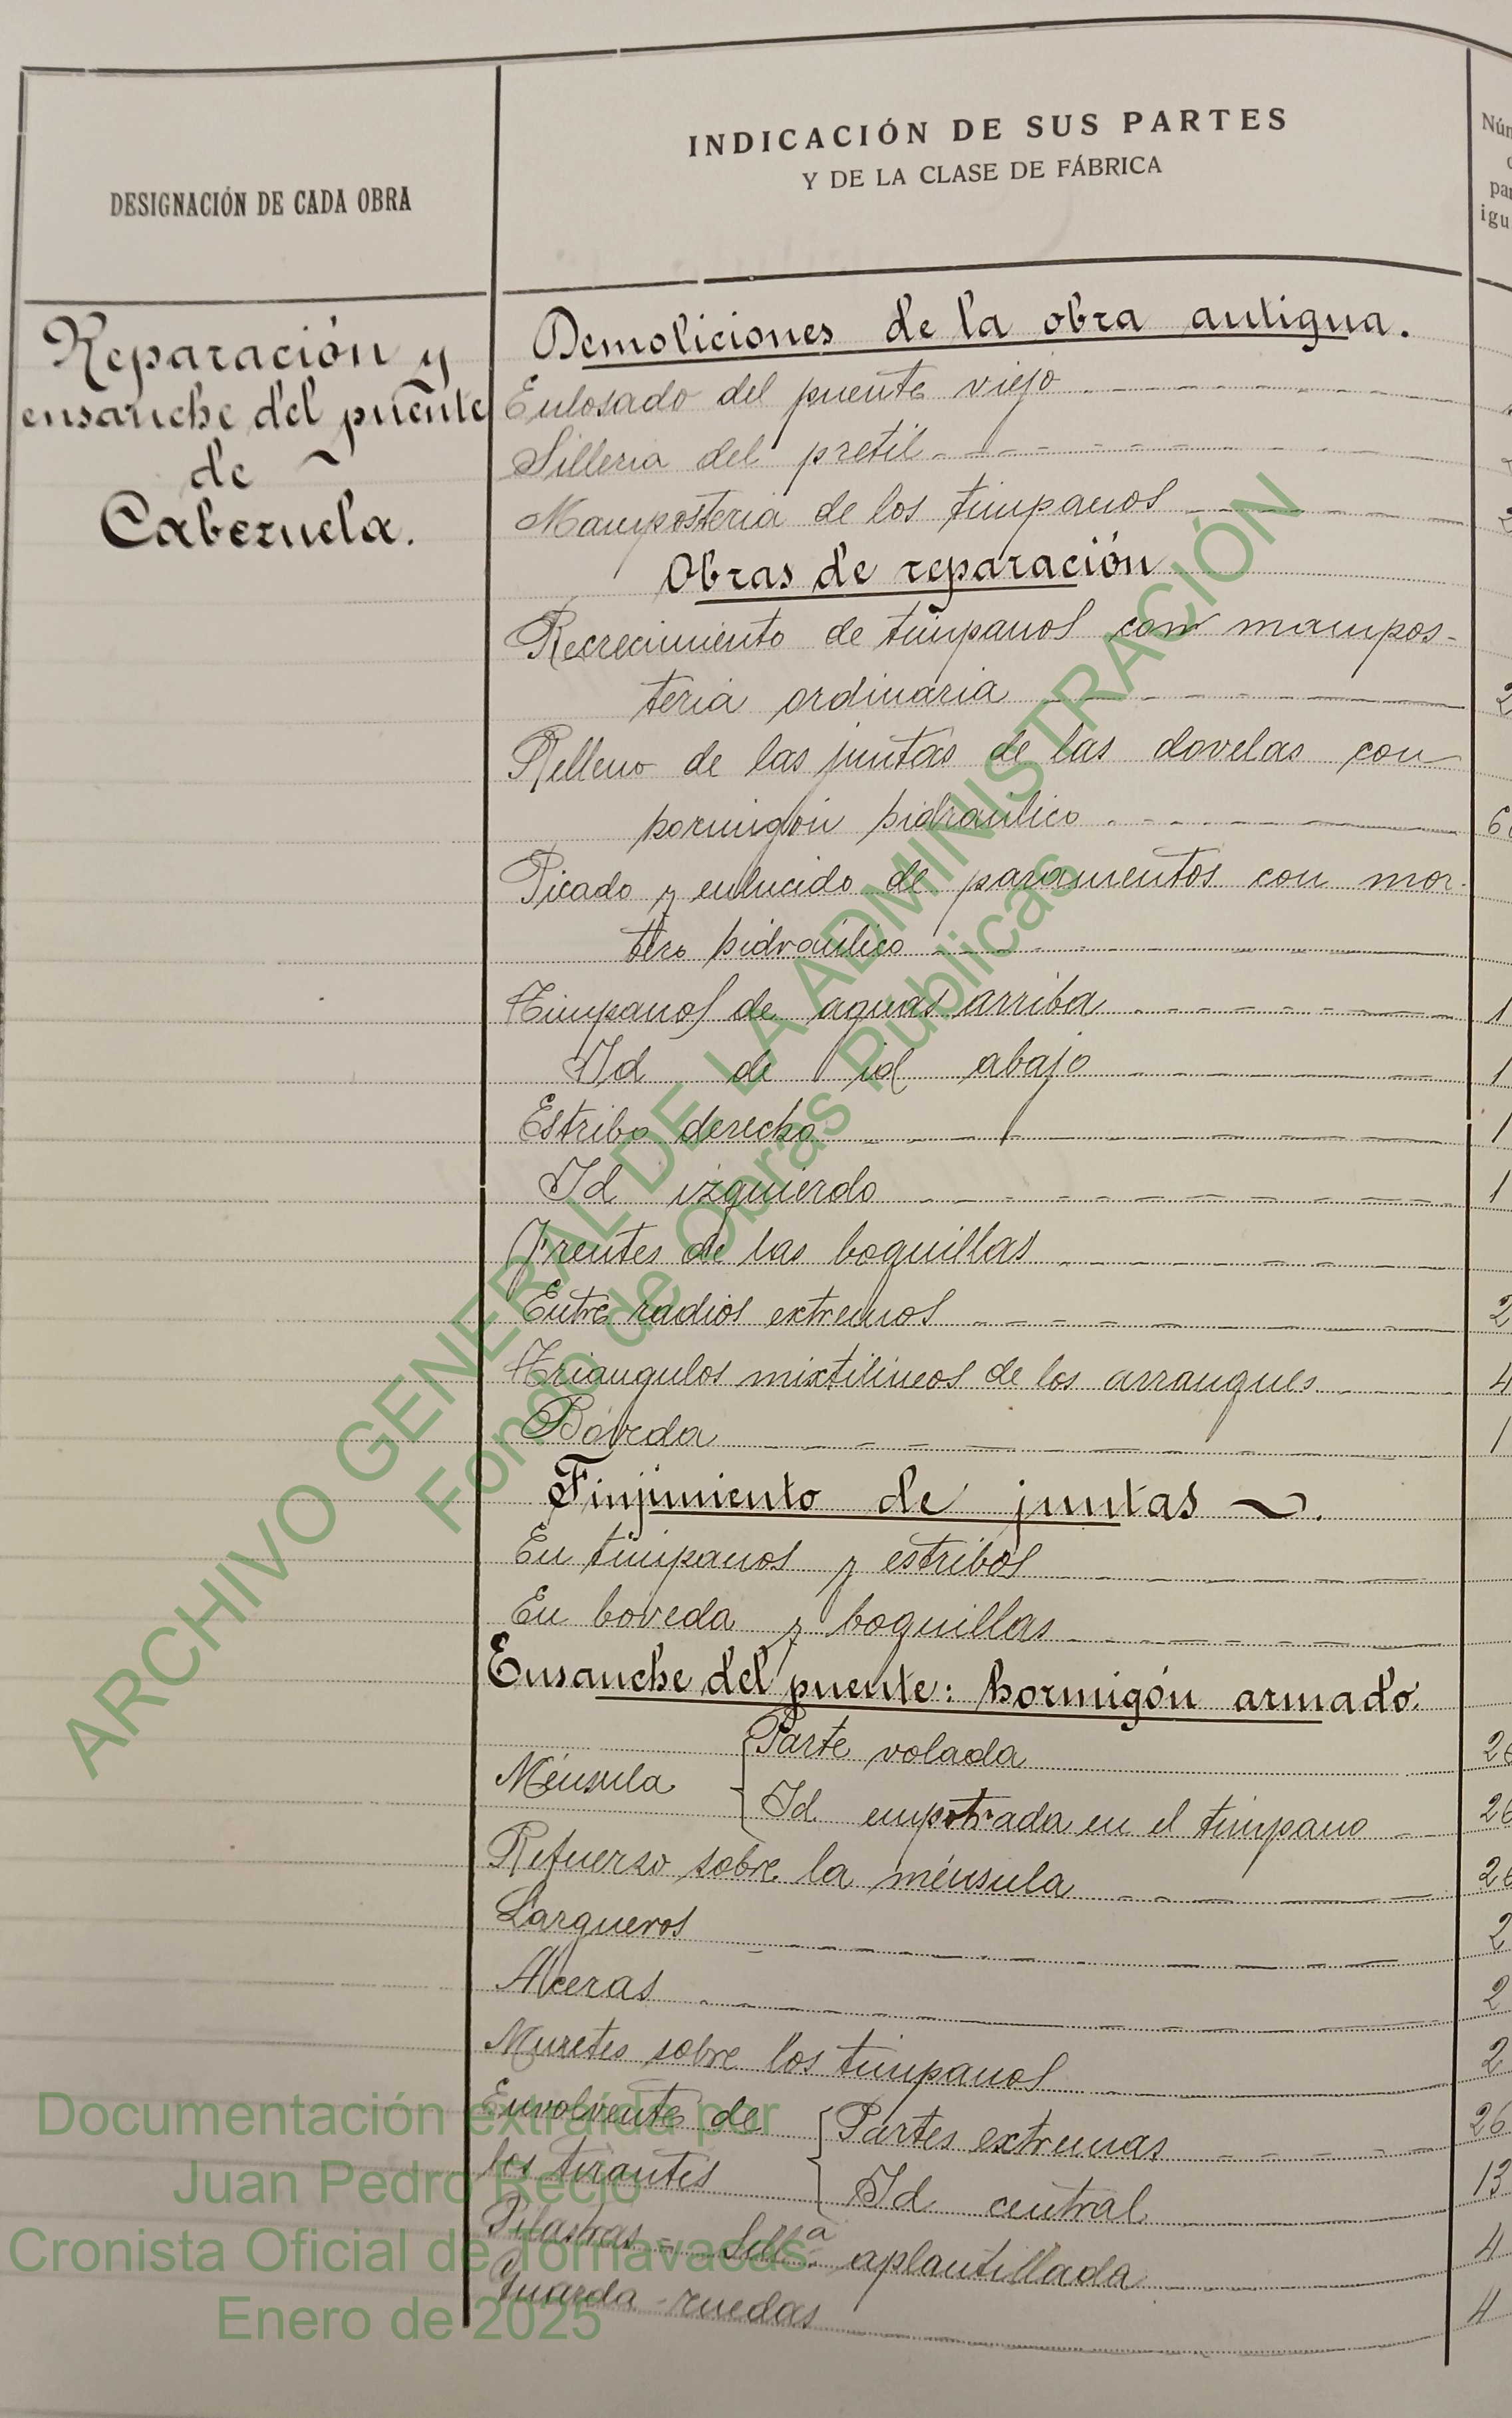 DESIGNACIÓN DE CADA OBRA
INDICACIÓN DE SUS PARTES
Y DE LA CLASE DE FÁBRICA
Reparación y
ensanche del puente
de
Cabezuela.
Demoliciones de la obra antigua.
Enlosado del puente viejo
Silleria del pretil
Mamposteria de los timpanos
Obras de reparación
Recrecimiento de timpanos con mampos-
teria ordinaria 2
Relleno de las juntas de las dovelas con
hormigón hidraulico
Picado y enlucido de paramentos con mor-
tero hidraulico
Timpanos de aguas arriba 1
Id de id abajo 1
Estribo derecho 1
Id izquierdo 1
Frentes de las boquillas
Entre radios extremos 2
Triangulos mixtilineos de los arranques 4
Bóveda 1
Finjimiento de juntas
En timpanos y estribos
En boveda y boquillas
Ensanche del puente: hormigón armado.
Ménsula
Parte volada 26
Id empotrada en el timpano 26
Refuerzo sobre la ménsula 26
Largueros 2
Aceras 2
Muretes sobre los timpanos 2
Envolvente de
los tirantes
Partes extremas 26
Id central 13
Pilastras = Sill.ª aplantillada 4
Guarda-ruedas 4
ARCHIVO GENERAL DE LA ADMINISTRACIÓN
Fondo de Obras Públicas
Documentación extraída por
Juan Pedro Recio
Cronista Oficial de Tornavacas.
Enero de 2025